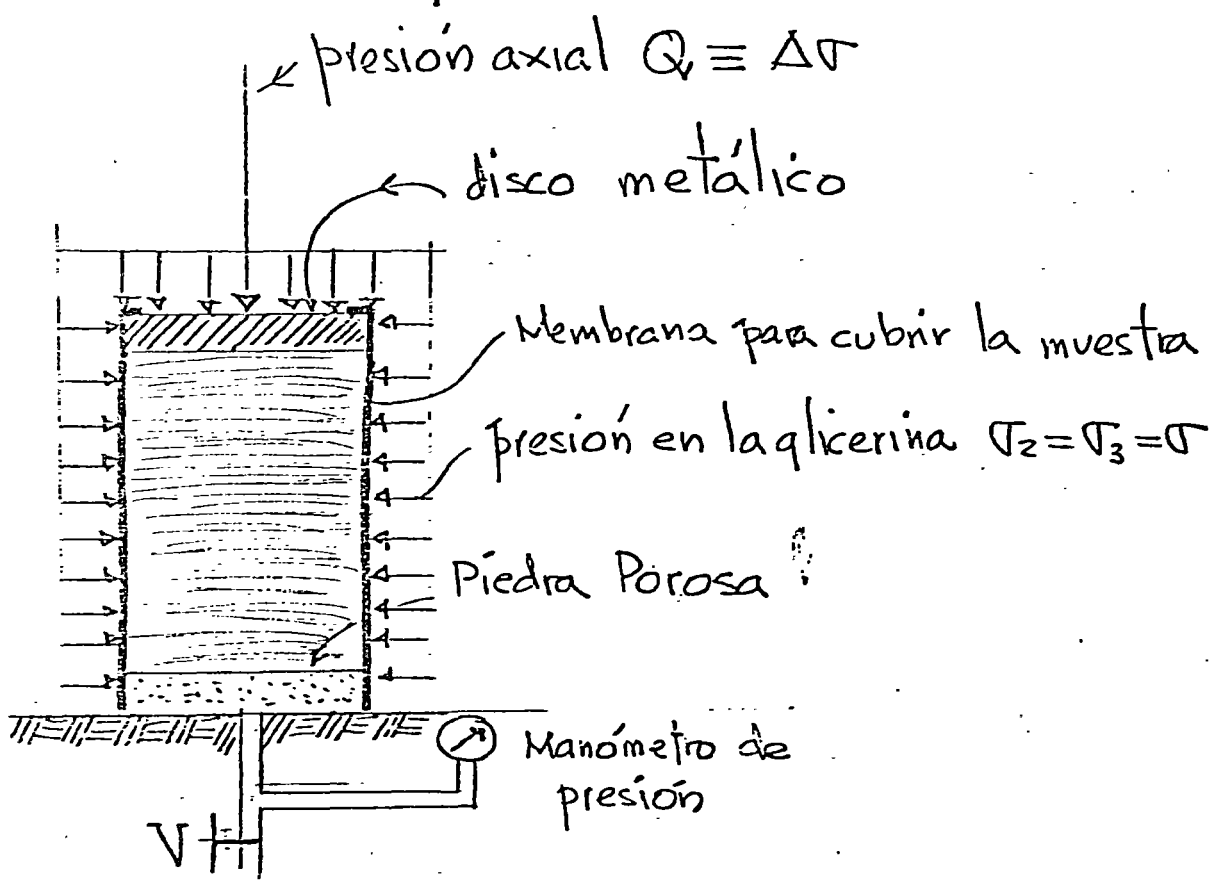 presión axial Q ≡ Δσ
disco metálico
Membrana para cubrir la muestra
presión en la glicerina σ2=σ3=σ
Piedra Porosa
Manómetro de
presión
V